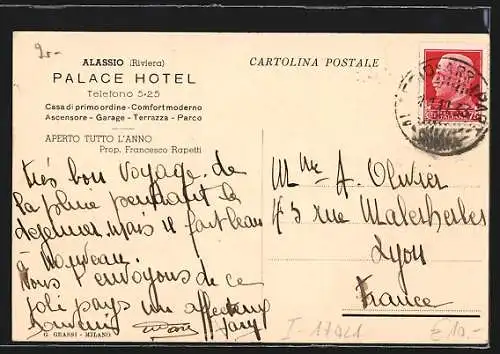 20-
ALASSIO (Riviera)
PALACE HOTEL
Telefono 5-25
Casa di primo ordine - Comfort moderno
Ascensore - Garage - Terrazza - Parco
APERTO TUTTO L'ANNO
Prop. Francesco Rapetti
CARTOLINA POSTALE
Très bon voyage. de
la pluie pendant le
dejeuner mais il fait beau
à nouveau.
Nous t'envoyons de ce
joli pays un affectueux
souvenir
G. GRASSI - MILANO
Mme A. Olivier
45 rue Malesherbes
Lyon
France
I-17021
€10.-